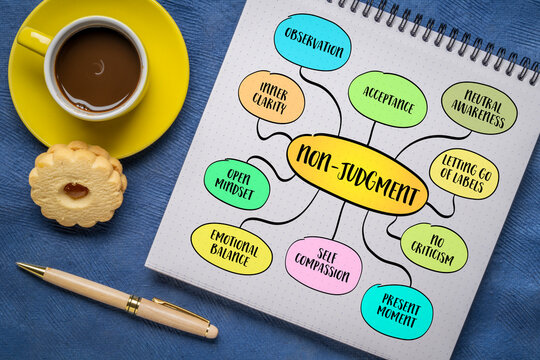 OBSERVATION
INNER
CLARITY
ACCEPTANCE
NEUTRAL
AWARENESS
NON-JUDGMENT
OPEN
MINDSET
LETTING GO
OF LABELS
EMOTIONAL
BALANCE
SELF
COMPASSION
NO
CRITICISM
PRESENT
MOMENT